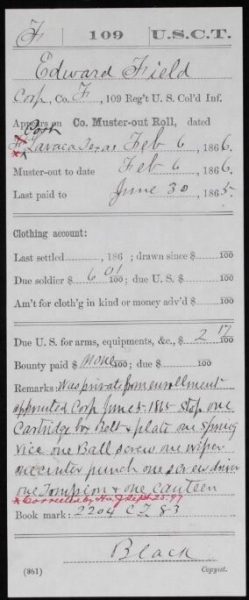 F | 109 | U.S.C.T.
Edward Field
Corp, Co. F, 109 Reg't U.S. Col'd Inf.
Appears on Co. Muster-out Roll, dated
Port
Lavaca Texas Feb 6, 1866.
Muster-out to date Feb 6, 1866.
Last paid to June 30, 1865.
Clothing account:
Last settled, 186 ; drawn since $ 100
Due soldier $ 6 01/100; due U.S. $ 100
Am't for cloth'g in kind or money adv'd $ 100
Due U.S. for arms, equipments, &c., $ 2 17/100
Bounty paid $ none 100; due $ 100
Remarks: Was private from enrollment
appointed Corp June 5. 1865 Stop one
Cartridge box Belt & plate one Spring
vice one Ball screw one wiper
one center punch one screw driver
one Tompion & one canteen
Book mark: 2204 C 83
Black
(361) Copyist.